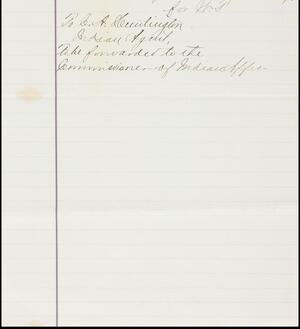 for W.T.
To E. A. Huntington
Indian Agent,
To be forwarded to the
Commissioner of Indian Affrs